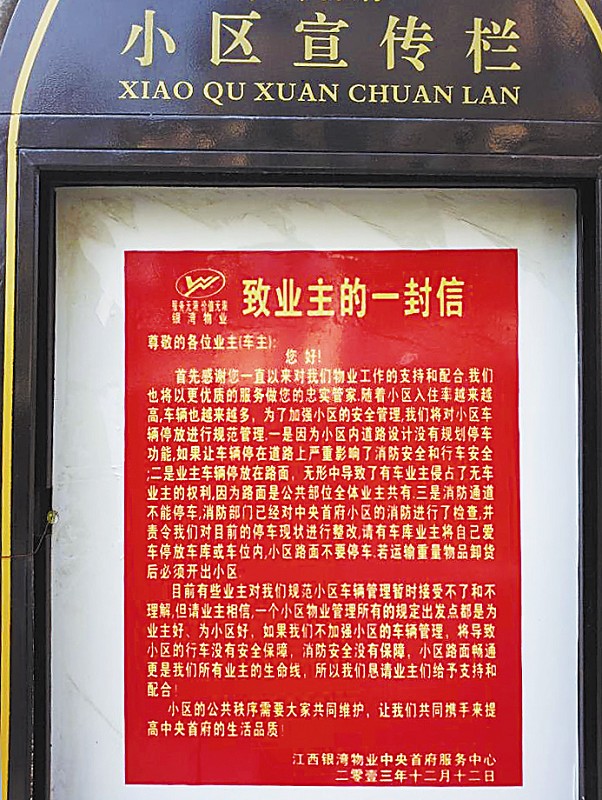 小区宣传栏
XIAO QU XUAN CHUAN LAN
服务无限 价值无限
银湾物业
致业主的一封信
尊敬的各位业主(车主):
您 好!
首先感谢您一直以来对我们物业工作的支持和配合.我们
也将以更优质的服务做您的忠实管家.随着小区入住率越来越
高,车辆也越来越多，为了加强小区的安全管理,我们将对小区车
辆停放进行规范管理.一是因为小区内道路设计没有规划停车
功能,如果让车辆停在道路上严重影响了消防安全和行车安全
;二是业主车辆停放在路面，无形中导致了有车业主侵占了无车
业主的权利,因为路面是公共部位全体业主共有.三是消防通道
不能停车,消防部门已经对中央首府小区的消防进行了检查,并
责令我们对目前的停车现状进行整改,请有车库业主将自己爱
车停放车库或车位内,小区路面不要停车.若运输重量物品卸货
后必须开出小区.
目前有些业主对我们规范小区车辆管理暂时接受不了和不
理解,但请业主相信,一个小区物业管理所有的规定出发点都是为
业主好、为小区好，如果我们不加强小区的车辆管理，将导致
小区的行车没有安全保障，消防安全没有保障，小区路面畅通
更是我们所有业主的生命线，所以我们恳请业主们给予支持和
配合!
小区的公共秩序需要大家共同维护，让我们共同携手来提
高中央首府的生活品质!
江西银湾物业中央首府服务中心
二零壹三年十二月十二日